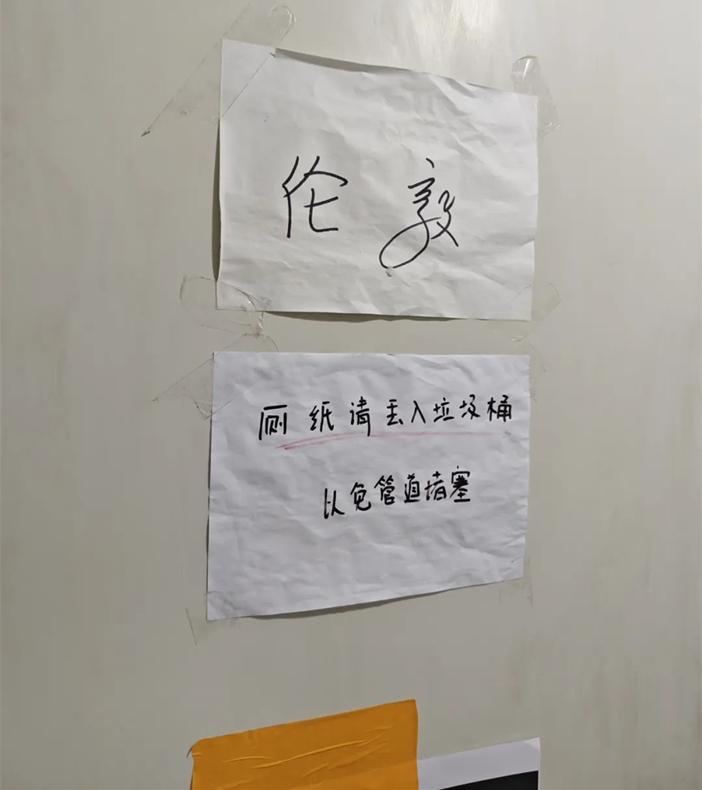 伦敦
厕纸请丢入垃圾桶
以免管道堵塞